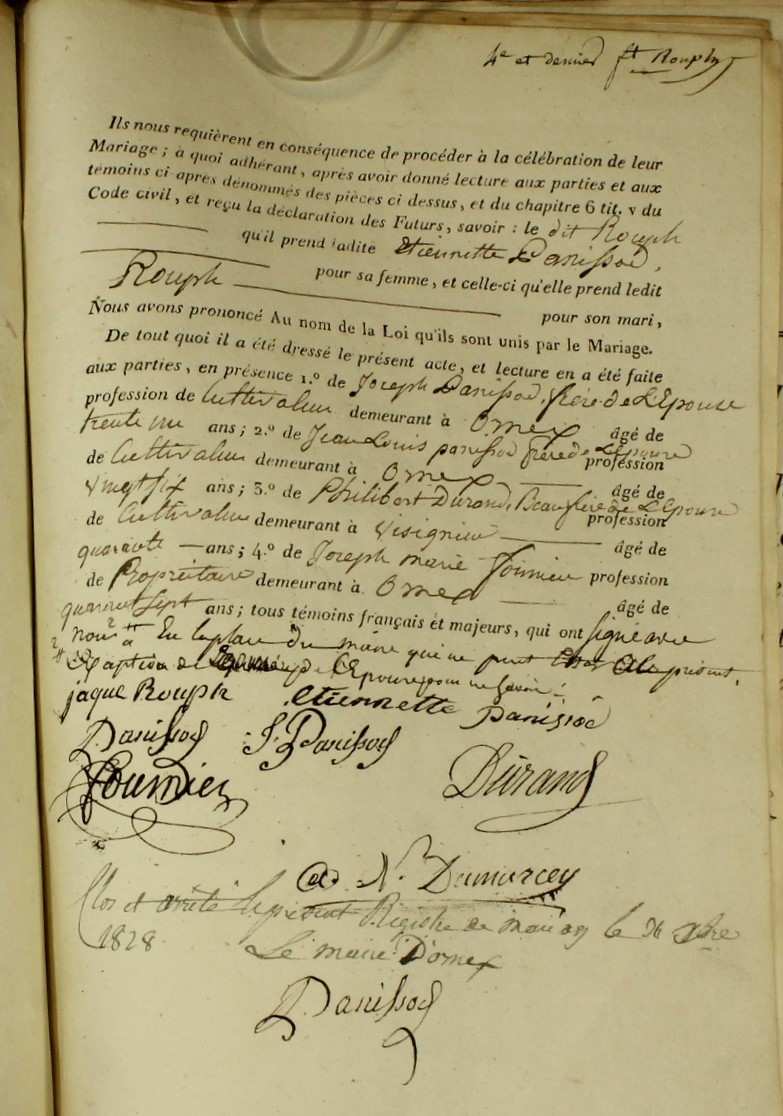 4e et dernier ft Rouph
Ils nous requièrent en conséquence de procéder à la célébration de leur
Mariage; à quoi adhérant, après avoir donné lecture aux parties et aux
témoins ci-après dénommés des pièces ci dessus, et du chapitre 6 tit. v du
Code civil, et reçu la déclaration des Futurs, savoir: le dit Rouph
qu'il prend ladite Etiennette Panissod,
pour sa femme, et celle-ci qu'elle prend ledit
Rouph pour son mari,
Nous avons prononcé Au nom de la Loi qu'ils sont unis par le Mariage.
De tout quoi il a été dressé le présent acte, et lecture en a été faite
aux parties, en présence 1.º de Joseph Panissod, frère de L'Epouse
profession de Cultivateur demeurant à Ornex âgé de
trente un ans; 2.º de Jean Louis panissod frère de L'Epouse profession
de Cultivateur demeurant à Ornex âgé de
vingt six ans; 3.º de Philibert Durand, Beaufrère de L'Epouse profession
de Cultivateur demeurant à Visignieu âgé de
quarante ans; 4.º de Joseph marie fournier profession
de Propriétaire demeurant à Ornex âgé de
quarante Sept ans; tous témoins français et majeurs, qui ont signé avec
nous En la place du maire qui ne peut
de L'Epoux pour ne savoir
jaque Rouph Etiennette Panissod
Panissod J. Panissod
fournier Durand
N. Dumurcey
Clos et arrêté le présent Registre de mariag le
1828 Le maire D'ornex
Panissod